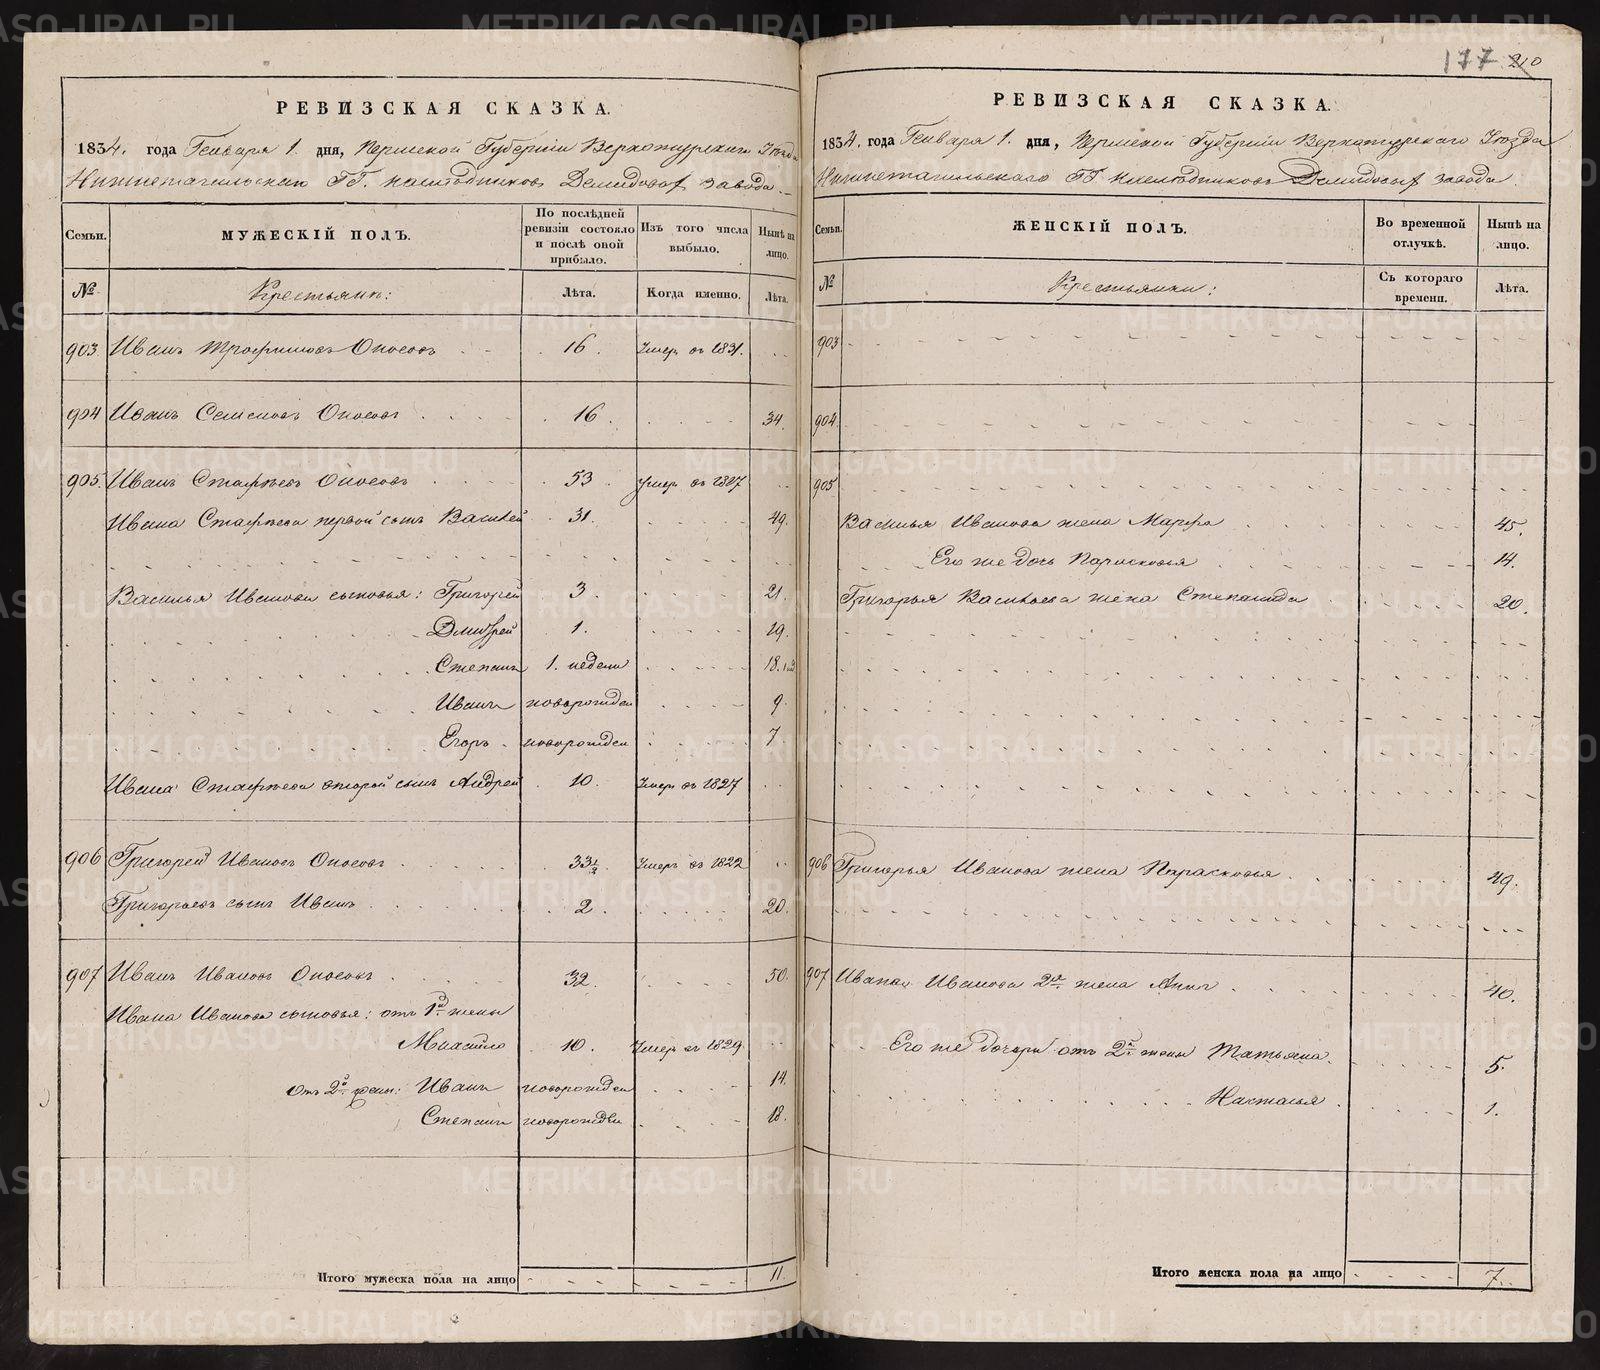 177 210
РЕВИЗСКАЯ СКАЗКА.
1834. года Генваря 1. дня, Пермской Губернии Верхотурскаго Уезда
Нижнетагильскаго ГГ. наследниковъ Демидовыхъ завода.
Семьи.
МУЖЕСКІЙ ПОЛЪ.
По послѣдней ревизіи состояло и послѣ оной прибыло.
Изъ того числа выбыло.
Нынѣ на лицо.
№
Крестьяне:
Лѣта.
Когда именно.
Лѣта.
903 Иванъ Трофимовъ Оносовъ 16. Умеръ въ 1831.
904 Иванъ Семеновъ Оносовъ 16. 34.
905. Иванъ Стафѣевъ Оносовъ 53. Умеръ въ 1827
Ивана Стафѣева первой сынъ Василей 31. 49.
Василья Иванова сыновья: Григорей 3. 21.
Дмитрей 1. 19.
Степанъ 1. недели 18.
Иванъ новорожден 9.
Егоръ новорожден 7
Ивана Стафѣева второй сынъ Андрей 10. Умеръ въ 1827
906 Григорей Ивановъ Оносовъ 33½. Умеръ въ 1822
Григорьевъ сынъ Иванъ 2. 20.
907 Иванъ Ивановъ Оносовъ 32. 50.
Ивана Иванова сыновья: отъ 1й жены
Михайло 10. Умеръ въ 1829.
Отъ 2й жены: Иванъ новорожден 14.
Степанъ новорожден 18.
Итого мужеска пола на лицо 11.
РЕВИЗСКАЯ СКАЗКА.
1834. года Генваря 1. дня, Пермской Губерніи Верхотурскаго Уезда
Нижнетагильскаго ГГ. наследниковъ Демидовыхъ завода.
Семьи.
ЖЕНСКІЙ ПОЛЪ.
Во временной отлучкѣ.
Нынѣ на лицо.
№
Крестьянки:
Съ котораго времени.
Лѣта.
903
904.
905
Василья Иванова жена Марфа 45.
Его же дочь Парасковья 14.
Григорья Васильева жена Степанида 20.
906 Григорья Иванова жена Парасковья 49.
907 Ивана Иванова 2я жена Анна 40.
Его же дочери отъ 2й жены Татьяна. 5.
Наталья. 1.
Итого женска пола на лицо 7.
METRIKI.GASO-URAL.RU